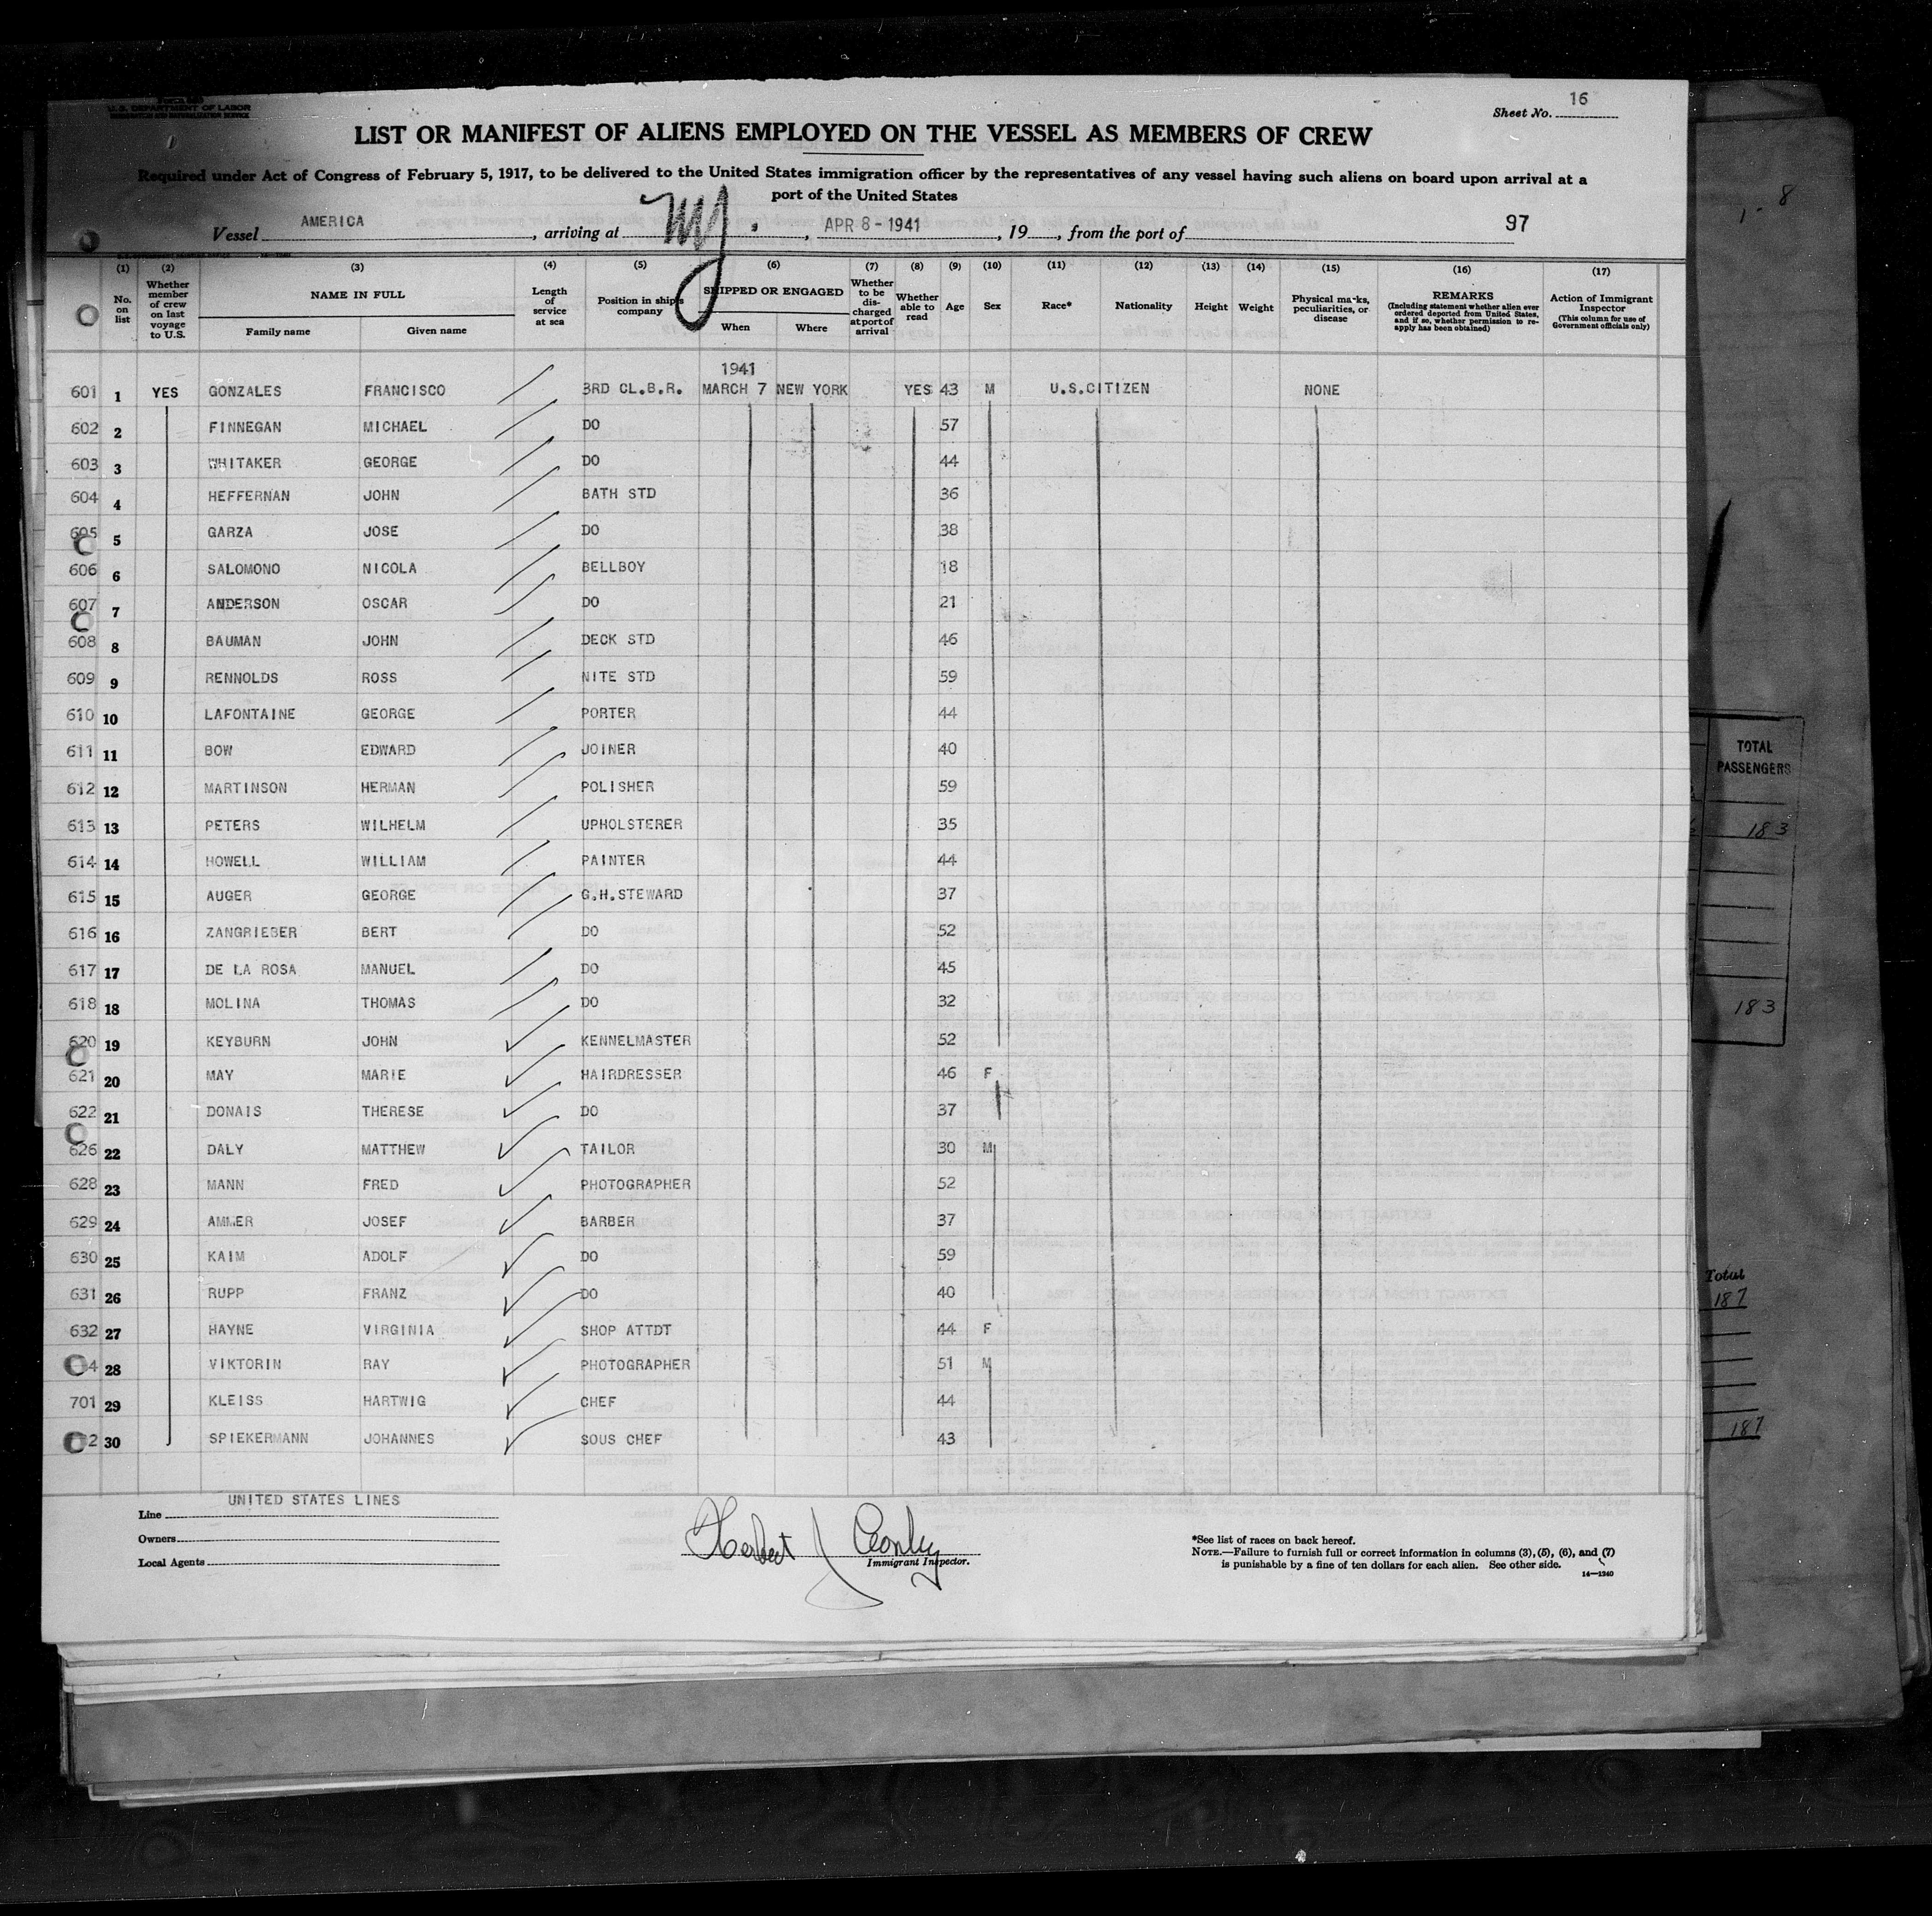 U.S. DEPARTMENT OF LABOR
IMMIGRATION AND NATURALIZATION SERVICE
Sheet No. 16
LIST OR MANIFEST OF ALIENS EMPLOYED ON THE VESSEL AS MEMBERS OF CREW
Required under Act of Congress of February 5, 1917, to be delivered to the United States immigration officer by the representatives of any vessel having such aliens on board upon arrival at a
port of the United States
Vessel AMERICA, arriving at NY., APR 8-1941, 19, from the port of 97
(1) (2) (3) (4) (5) (6) (7) (8) (9) (10) (11) (12) (13) (14) (15) (16) (17)
No. on list
Whether member of crew on last voyage to U.S.
NAME IN FULL
Family name Given name
Length of service at sea
Position in ship's company
SHIPPED OR ENGAGED
When Where
Whether to be discharged at port of arrival
Whether able to read
Age
Sex
Race*
Nationality
Height
Weight
Physical marks, peculiarities, or disease
REMARKS
(Including statement whether alien ever ordered deported from United States, and if so, whether permission to reapply has been obtained)
Action of Immigrant Inspector
(This column for use of Government officials only)
1941
601 1 YES GONZALES FRANCISCO 3RD CL.B.R. MARCH 7 NEW YORK YES 43 M U.S.CITIZEN NONE
602 2 FINNEGAN MICHAEL DO 57
603 3 WHITAKER GEORGE DO 44
604 4 HEFFERNAN JOHN BATH STD 36
605 5 GARZA JOSE DO 38
606 6 SALOMONO NICOLA BELLBOY 18
607 7 ANDERSON OSCAR DO 21
608 8 BAUMAN JOHN DECK STD 46
609 9 RENNOLDS ROSS NITE STD 59
610 10 LAFONTAINE GEORGE PORTER 44
611 11 BOW EDWARD JOINER 40
612 12 MARTINSON HERMAN POLISHER 59
613 13 PETERS WILHELM UPHOLSTERER 35
614 14 HOWELL WILLIAM PAINTER 44
615 15 AUGER GEORGE G.H.STEWARD 37
616 16 ZANGRIEBER BERT DO 52
617 17 DE LA ROSA MANUEL DO 45
618 18 MOLINA THOMAS DO 32
620 19 KEYBURN JOHN KENNELMASTER 52
621 20 MAY MARIE HAIRDRESSER 46 F
622 21 DONAIS THERESE DO 37
626 22 DALY MATTHEW TAILOR 30 M
628 23 MANN FRED PHOTOGRAPHER 52
629 24 AMMER JOSEF BARBER 37
630 25 KAIM ADOLF DO 59
631 26 RUPP FRANZ DO 40
632 27 HAYNE VIRGINIA SHOP ATTDT 44 F
4 28 VIKTORIN RAY PHOTOGRAPHER 51 M
701 29 KLEISS HARTWIG CHEF 44
2 30 SPIEKERMANN JOHANNES SOUS CHEF 43
Line UNITED STATES LINES
Owners
Local Agents
Herbert J Conley
Immigrant Inspector.
*See list of races on back hereof.
NOTE.—Failure to furnish full or correct information in columns (3), (5), (6), and (7)
is punishable by a fine of ten dollars for each alien. See other side.
14—1240
1- 8
TOTAL
PASSENGERS
183
183
Total
187
187